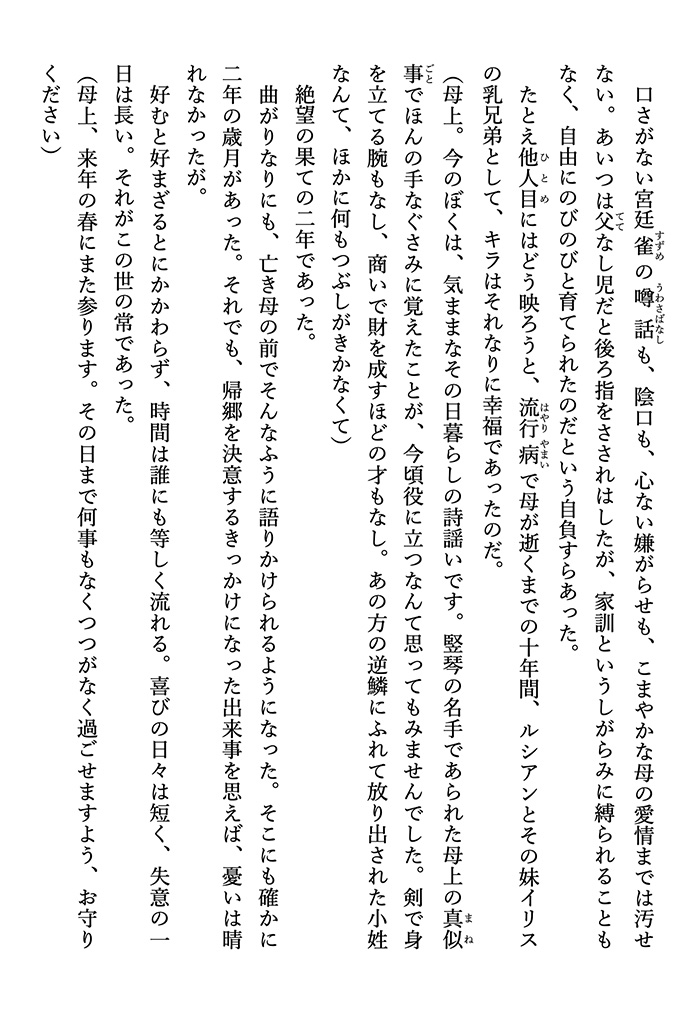 口さがない宮廷雀の噂話も、陰口も、心ない嫌がらせも、こまやかな母の愛情までは汚せ
ない。あいつは父なし児だと後ろ指をさされはしたが、家訓というしがらみに縛られることも
なく、自由にのびのびと育てられたのだという自負すらあった。
たとえ他人目にはどう映ろうと、流行病で母が逝くまでの十年間、ルシアンとその妹イリス
の乳兄弟として、キラはそれなりに幸福であったのだ。
(母上。今のぼくは、気ままなその日暮らしの詩謡いです。竪琴の名手であられた母上の真似
事でほんの手なぐさみに覚えたことが、今頃役に立つなんて思ってもみませんでした。剣で身
を立てる腕もなし、商いで財を成すほどの才もなし。あの方の逆鱗にふれて放り出された小姓
なんて、ほかに何もつぶしがきかなくて)
絶望の果ての二年であった。
曲がりなりにも、亡き母の前でそんなふうに語りかけられるようになった。そこにも確かに
二年の歳月があった。それでも、帰郷を決意するきっかけになった出来事を思えば、憂いは晴
れなかったが。
好むと好まざるとにかかわらず、時間は誰にも等しく流れる。喜びの日々は短く、失意の一
日は長い。それがこの世の常であった。
(母上、来年の春にまた参ります。その日まで何事もなくつつがなく過ごせますよう、お守り
ください)